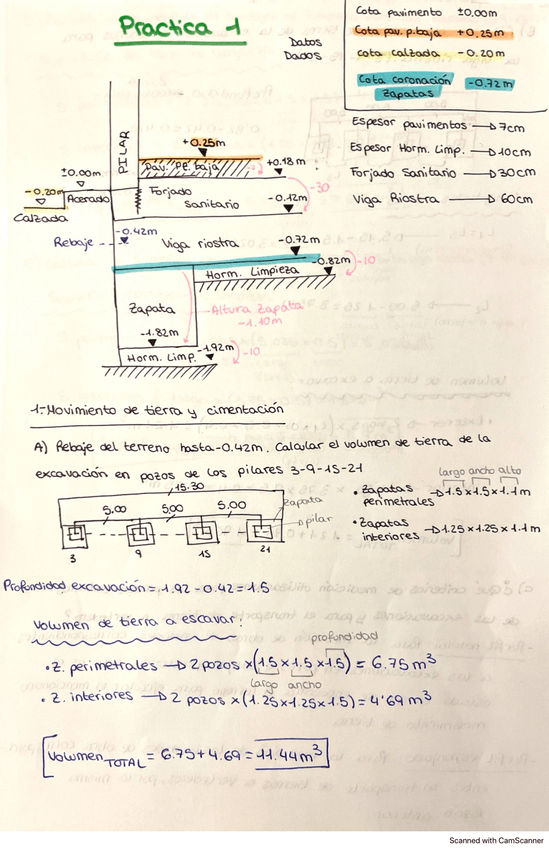 Practica 1
Datos
Dados
Cota pavimento ±0.00m
Cota pav. p.baja +0.25m
cota calzada -0.20m
Cota coronación
Zapatas -0.72m
Espesor pavimentos → 7cm
Espesor Horm. Limp. → 10cm
Forjado Sanitario → 30cm
Viga Riostra → 60cm
PILAR
+0.25m
Pav. Pl. baja
+0.18m
-30
±0.00m
Acerado
Forjado
Sanitario
-0.12m
-0.20m
Calzada
-0.42m
Rebaje
Viga riostra
-0.72m
-0.82m
-10
Horm. Limpieza
Zapata
Altura zapata
-1.10m
-1.82m
-1.92m
-10
Horm. Limp.
1-Movimiento de tierra y cimentación
A) Rebaje del terreno hasta -0.42m. Calcular el volumen de tierra de la
excavación en pozos de los pilares 3-9-15-21
15.30
5.00 5.00 5.00
zapata
pilar
3 9 15 21
largo ancho alto
• Zapatas
perimetrales → 1.5 x 1.5 x 1.1 m
• Zapatas
interiores → 1.25 x 1.25 x 1.1 m
Profundidad excavación = 1.92 - 0.42 = 1.5
Volumen de tierra a escavar:
profundidad
• Z. perimetrales → 2 pozos x (1.5 x 1.5 x 1.5) = 6.75 m³
largo ancho
• Z. interiores → 2 pozos x (1.25 x 1.25 x 1.5) = 4'69 m³
Volumen TOTAL = 6.75 + 4.69 = 11.44 m³
Scanned with CamScanner